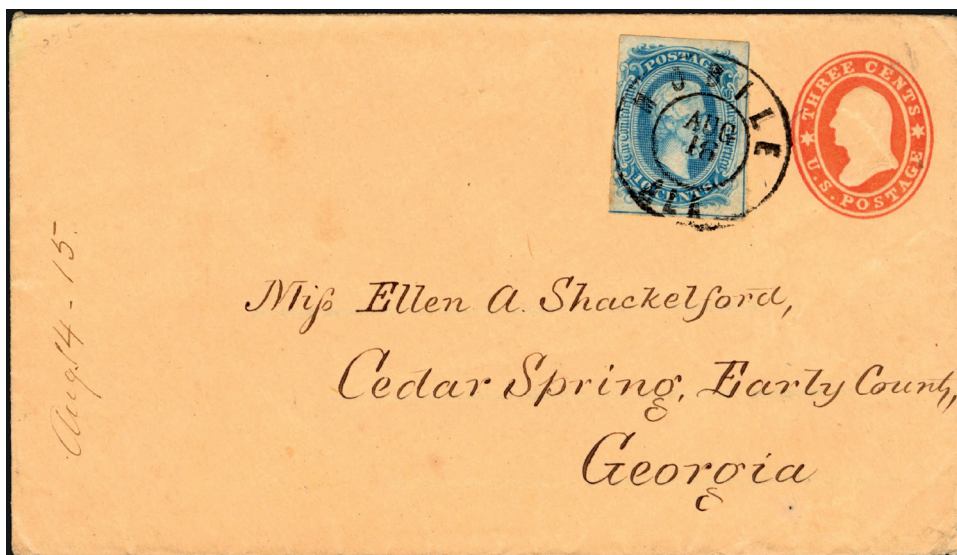 POSTAGE
10 CENTS
MOBILE
AUG
ALA
THREE CENTS
U.S. POSTAGE
Aug. 14 - 15.
Miſs Ellen A. Shackelford,
Cedar Spring, Early County,
Georgia